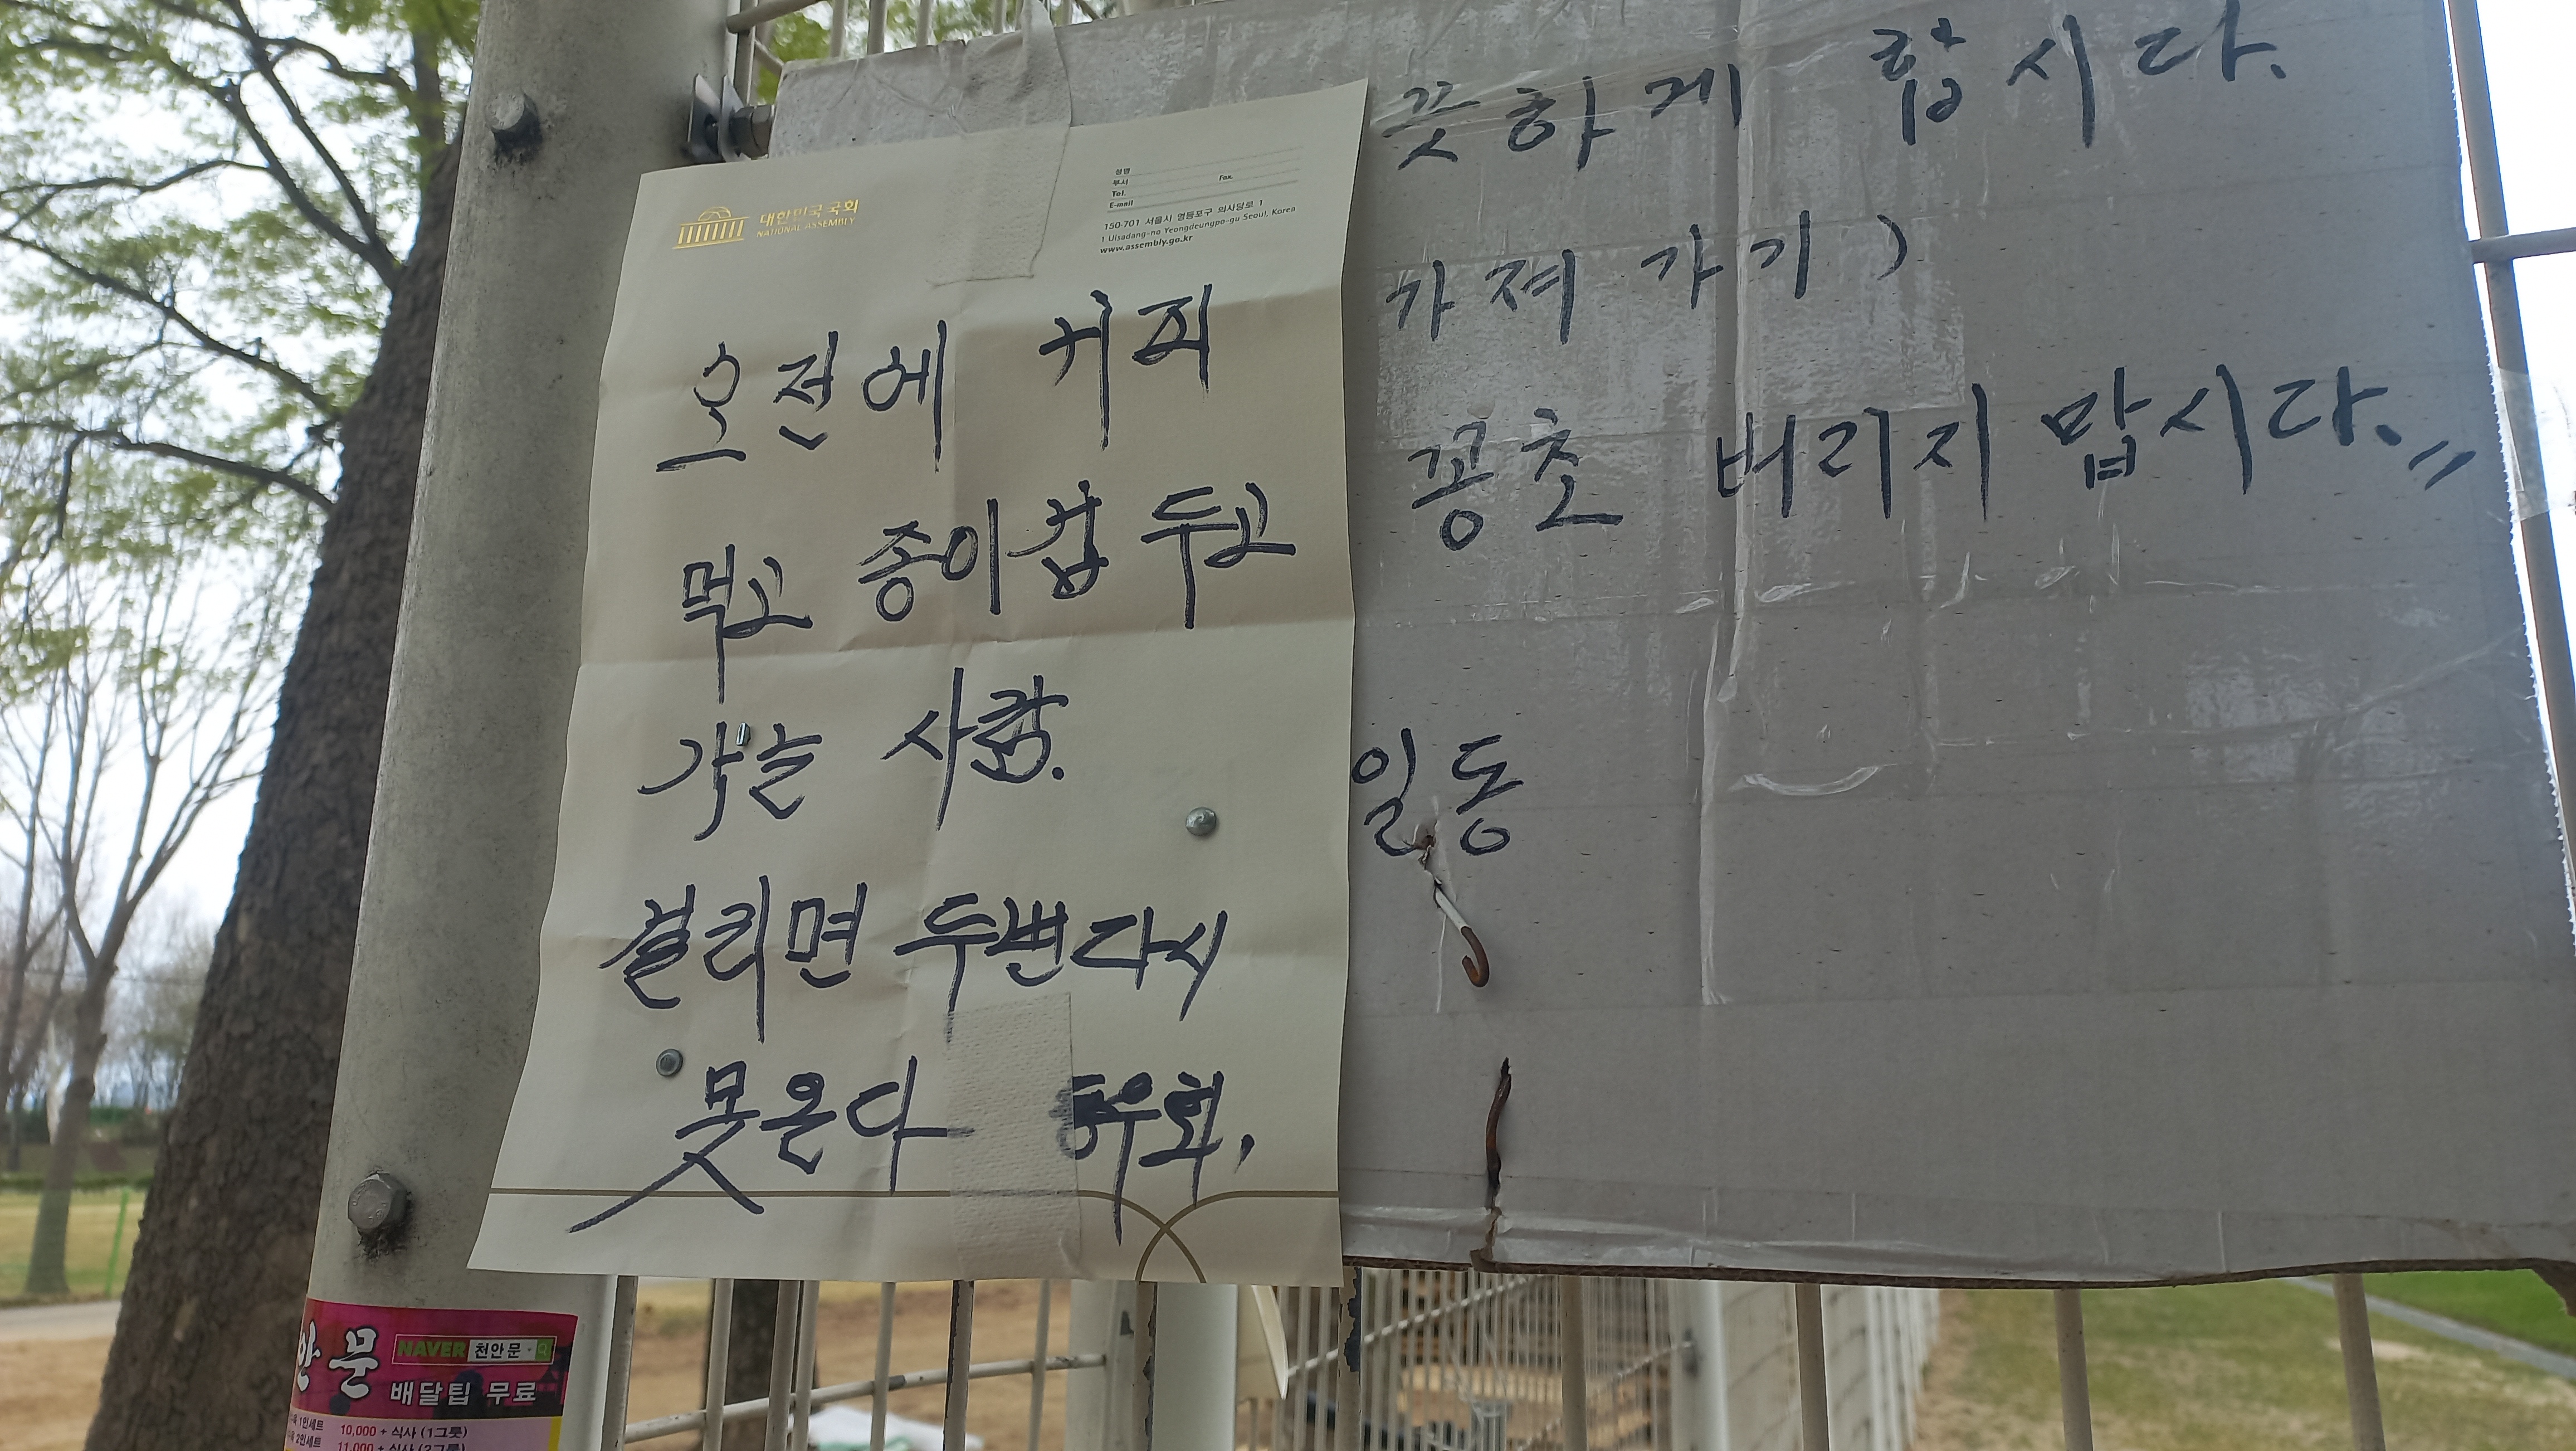 대한민국 국회
NATIONAL ASSEMBLY
성명
부서
Tel. Fax.
E-mail
150-701 서울시 영등포구 의사당로 1
1 Uisadang-no Yeongdeungpo-gu Seoul, Korea
www.assembly.go.kr
오전에 커피
먹고 종이컵 두고
가는 사람.
걸리면 두번다시
못온다
끗하게 합시다.
가져가기)
꽁초 버리지 맙시다.〃
일동
안문
NAVER 천안문
배달팁 무료
1인세트 10,000 + 식사 (1그릇)
2인세트 11,000 + 식사 (2그릇)